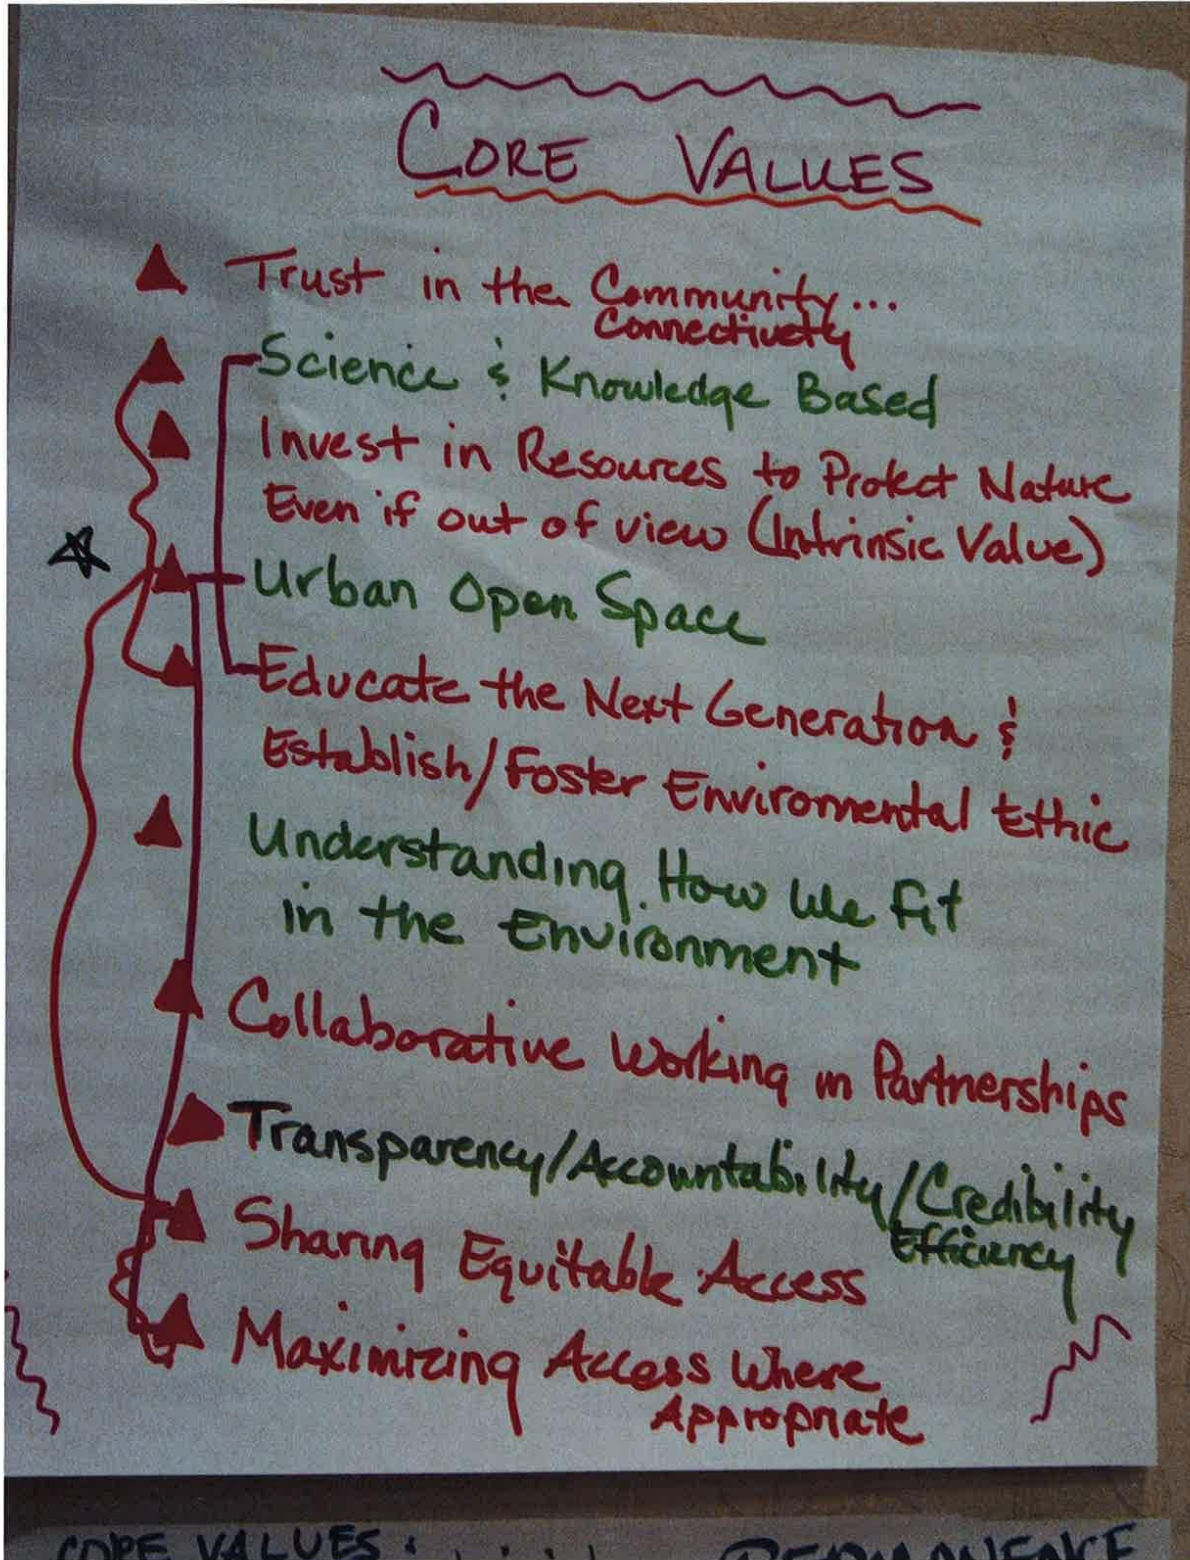 CORE VALUES
Trust in the Community...
Connectivety
Science & Knowledge Based
Invest in Resources to Protect Nature
Even if out of view (Intrinsic Value)
Urban Open Space
Educate the Next Generation &
Establish/Foster Enviromental Ethic
Understanding How We Fit
in the Environment
Collaborative Working in Partnerships
Transparency/Accountability/Credibility
Efficiency
Sharing Equitable Access
Maximizing Access Where
Appropriate
CORE VALUES: